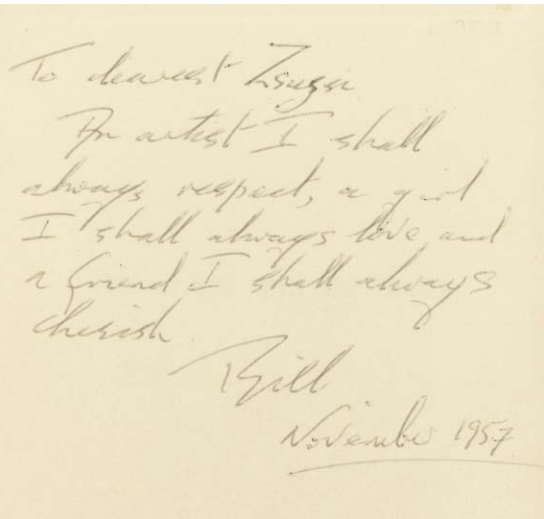 To dearest Zsuzsi
An artist I shall
always respect, a girl
I shall always love and
a friend I shall always
cherish
Bill
November 1957